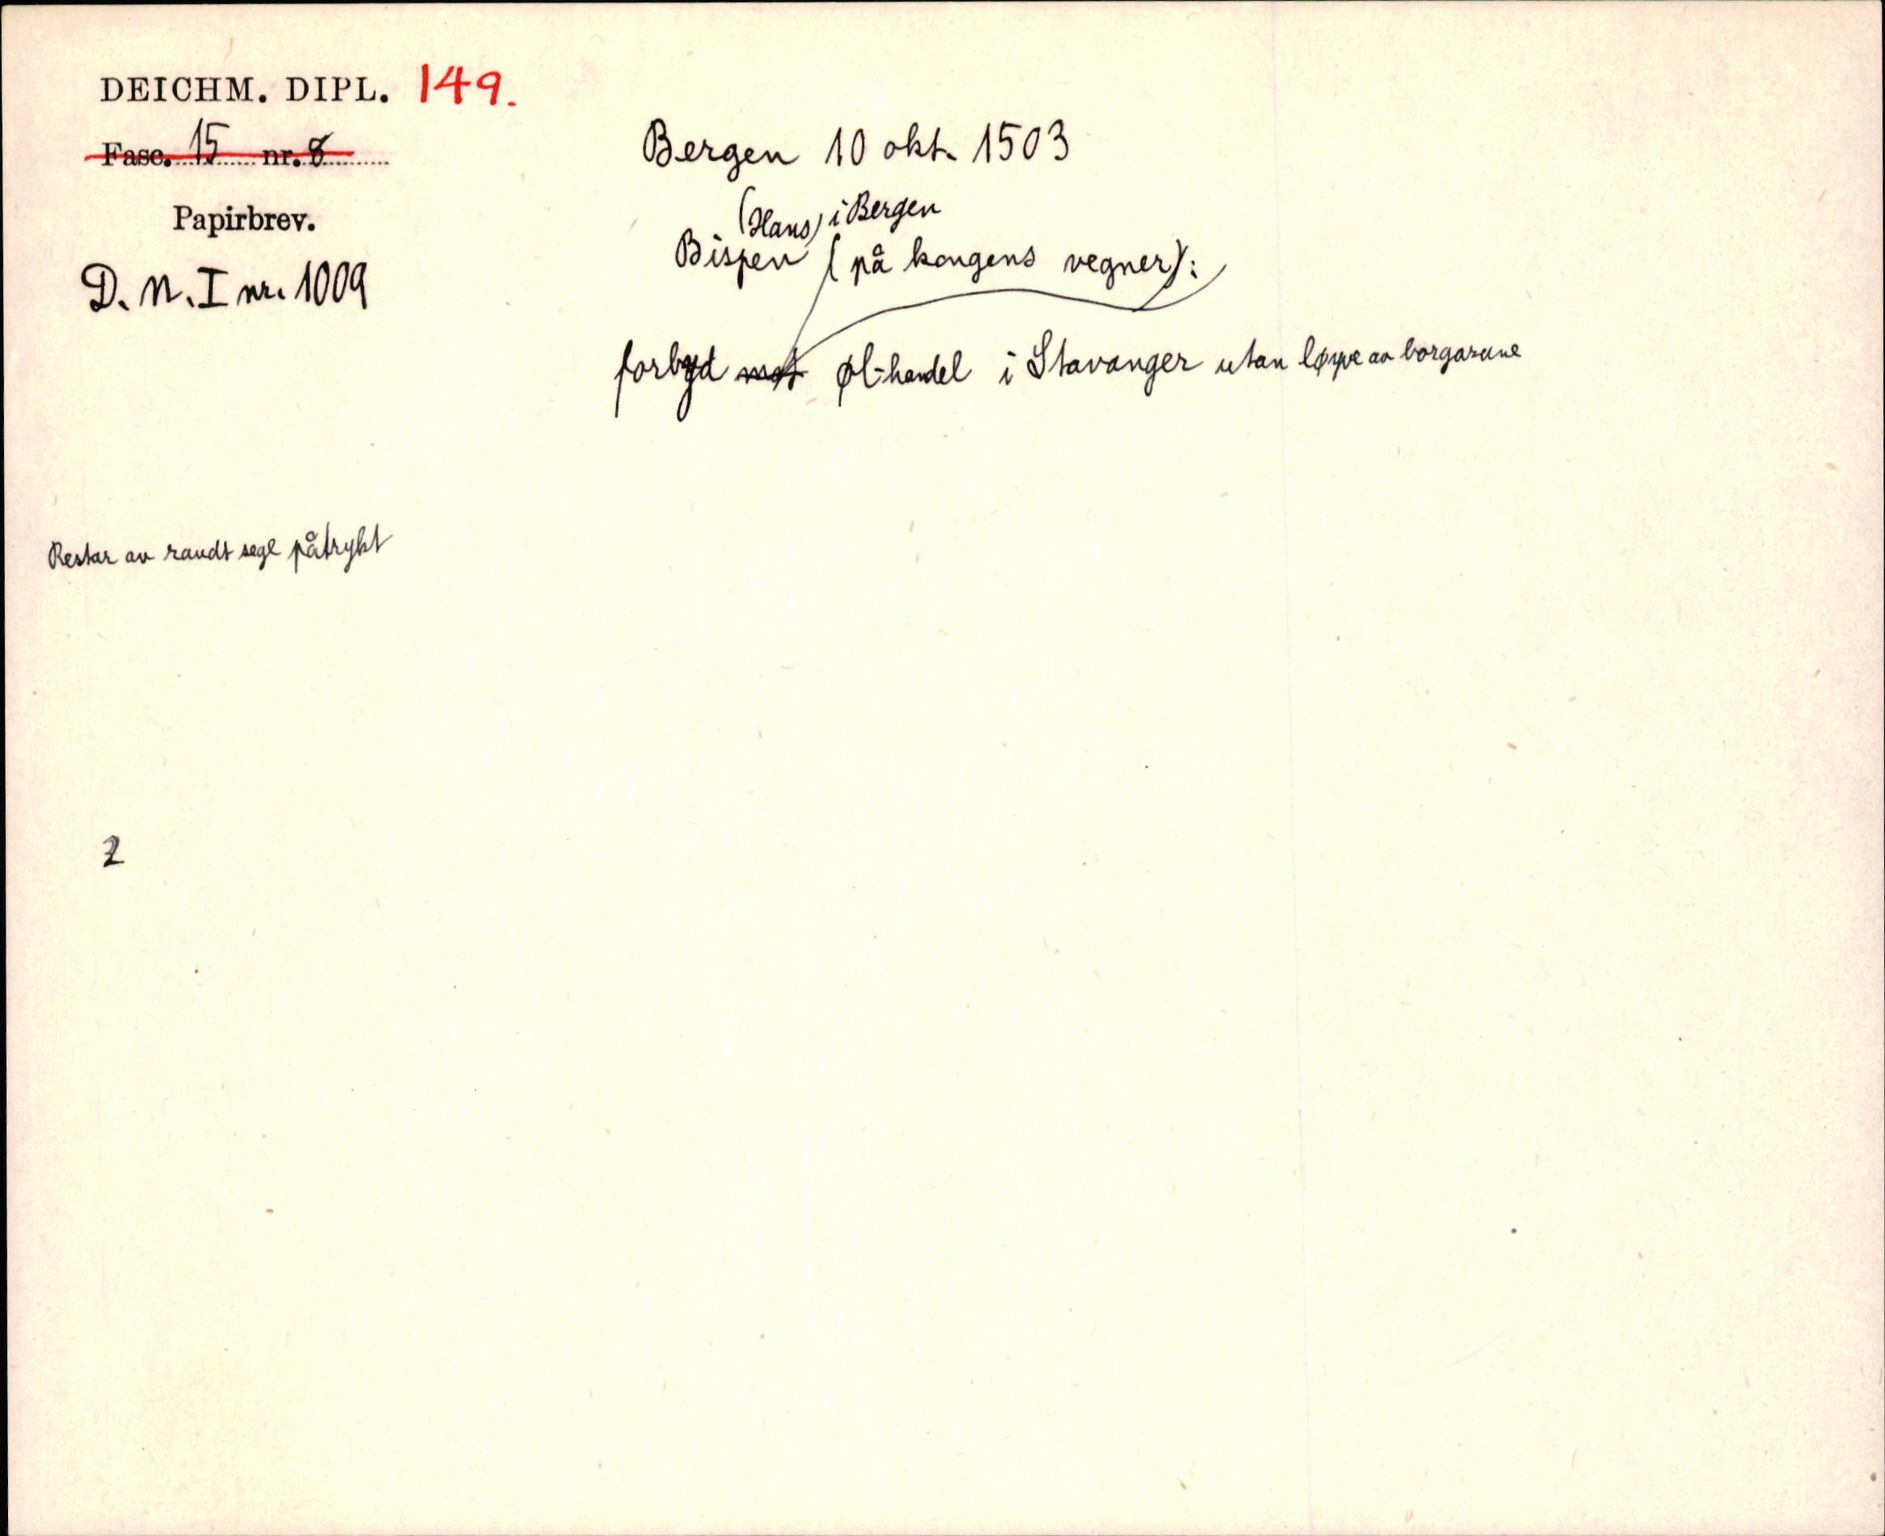 DEICHM. DIPL. 149.
Fasc. 15 nr. 8
Papirbrev.
D. N. I nr. 1009
Bergen 10 okt. 1503
(Hans) i Bergen
Bispen (på kongens vegner):
forbyd mot øl-handel i Stavanger utan løyve av borgarane
Restar av raudt segl påtrykt
2